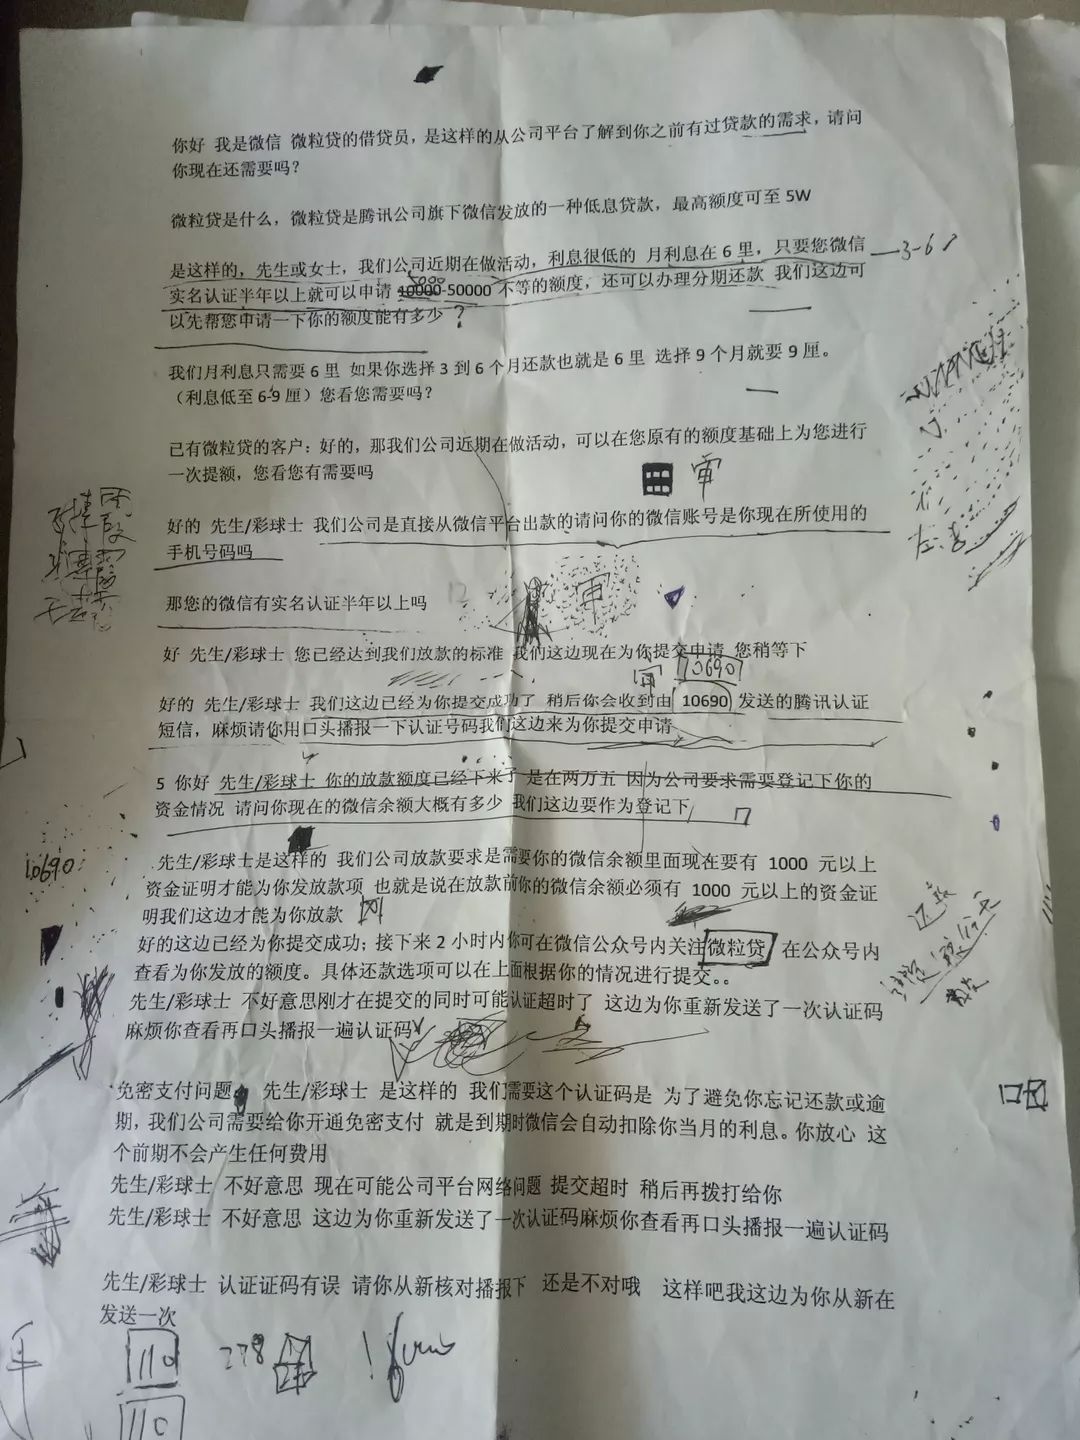 你好 我是微信 微粒贷的借贷员，是这样的从公司平台了解到你之前有过贷款的需求，请问
你现在还需要吗？
微粒贷是什么，微粒贷是腾讯公司旗下微信发放的一种低息贷款，最高额度可至 5W
是这样的，先生或女士，我们公司近期在做活动，利息很低的 月利息在 6 里，只要您微信
3-6
实名认证半年以上就可以申请 10000-50000 不等的额度，还可以办理分期还款 我们这边可
以先帮您申请一下你的额度能有多少？
我们月利息只需要 6 里 如果你选择 3 到 6 个月还款也就是 6 里 选择 9 个月就要 9 厘。
（利息低至 6-9 厘）您看您需要吗？
已有微粒贷的客户：好的，那我们公司近期在做活动，可以在您原有的额度基础上为您进行
一次提额，您看您有需要吗
好的 先生/彩球士 我们公司是直接从微信平台出款的请问你的微信账号是你现在所使用的
手机号码吗
那您的微信有实名认证半年以上吗
12
好 先生/彩球士 您已经达到我们放款的标准 我们这边现在为你提交申请 您稍等下
10690
好的 先生/彩球士 我们这边已经为你提交成功了 稍后你会收到由 10690 发送的腾讯认证
短信，麻烦请你用口头播报一下认证号码我们这边来为你提交申请
5 你好 先生/彩球士 你的放款额度已经下来了 是在两万五 因为公司要求需要登记下你的
资金情况 请问你现在的微信余额大概有多少 我们这边要作为登记下
先生/彩球士是这样的 我们公司放款要求是需要你的微信余额里面现在要有 1000 元以上
10690
资金证明才能为你发放款项 也就是说在放款前你的微信余额必须有 1000 元以上的资金证
明我们这边才能为你放款
好的这边已经为你提交成功；接下来 2 小时内你可在微信公众号内关注微粒贷 在公众号内
查看为你发放的额度。具体还款选项可以在上面根据你的情况进行提交。。
先生/彩球士 不好意思刚才在提交的同时可能认证超时了 这边为你重新发送了一次认证码
麻烦你查看再口头播报一遍认证码
免密支付问题 先生/彩球士 是这样的 我们需要这个认证码是 为了避免你忘记还款或逾
期，我们公司需要给你开通免密支付 就是到期时微信会自动扣除你当月的利息。你放心 这
个前期不会产生任何费用
先生/彩球士 不好意思 现在可能公司平台网络问题 提交超时 稍后再拨打给你
先生/彩球士 不好意思 这边为你重新发送了一次认证码麻烦你查看再口头播报一遍认证码
先生/彩球士 认证证码有误 请你从新核对播报下 还是不对哦 这样吧我这边为你从新在
发送一次
110
278
110